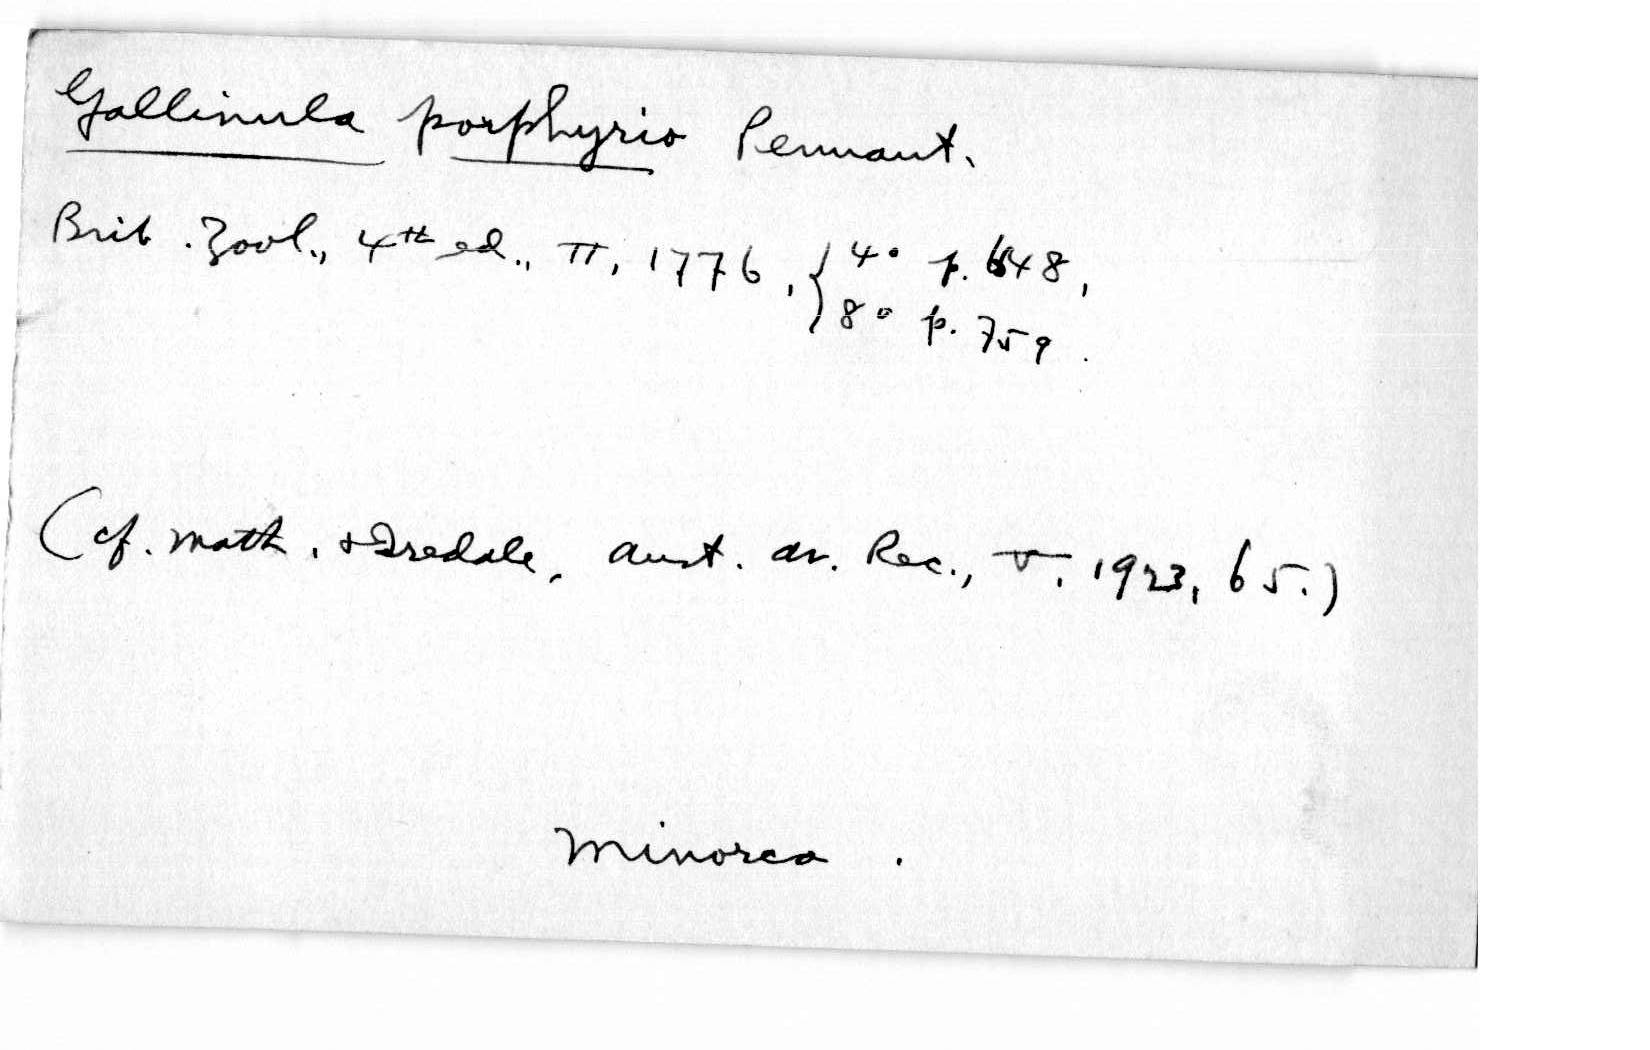 Gallinula porphyrio Pennant.
Brit. Zool., 4th ed., II, 1776, { 4° p. 648,
8° p. 759.
(cf. Math. & Iredale, Aust. Av. Rec., V, 1923, 65.)
Minorca.